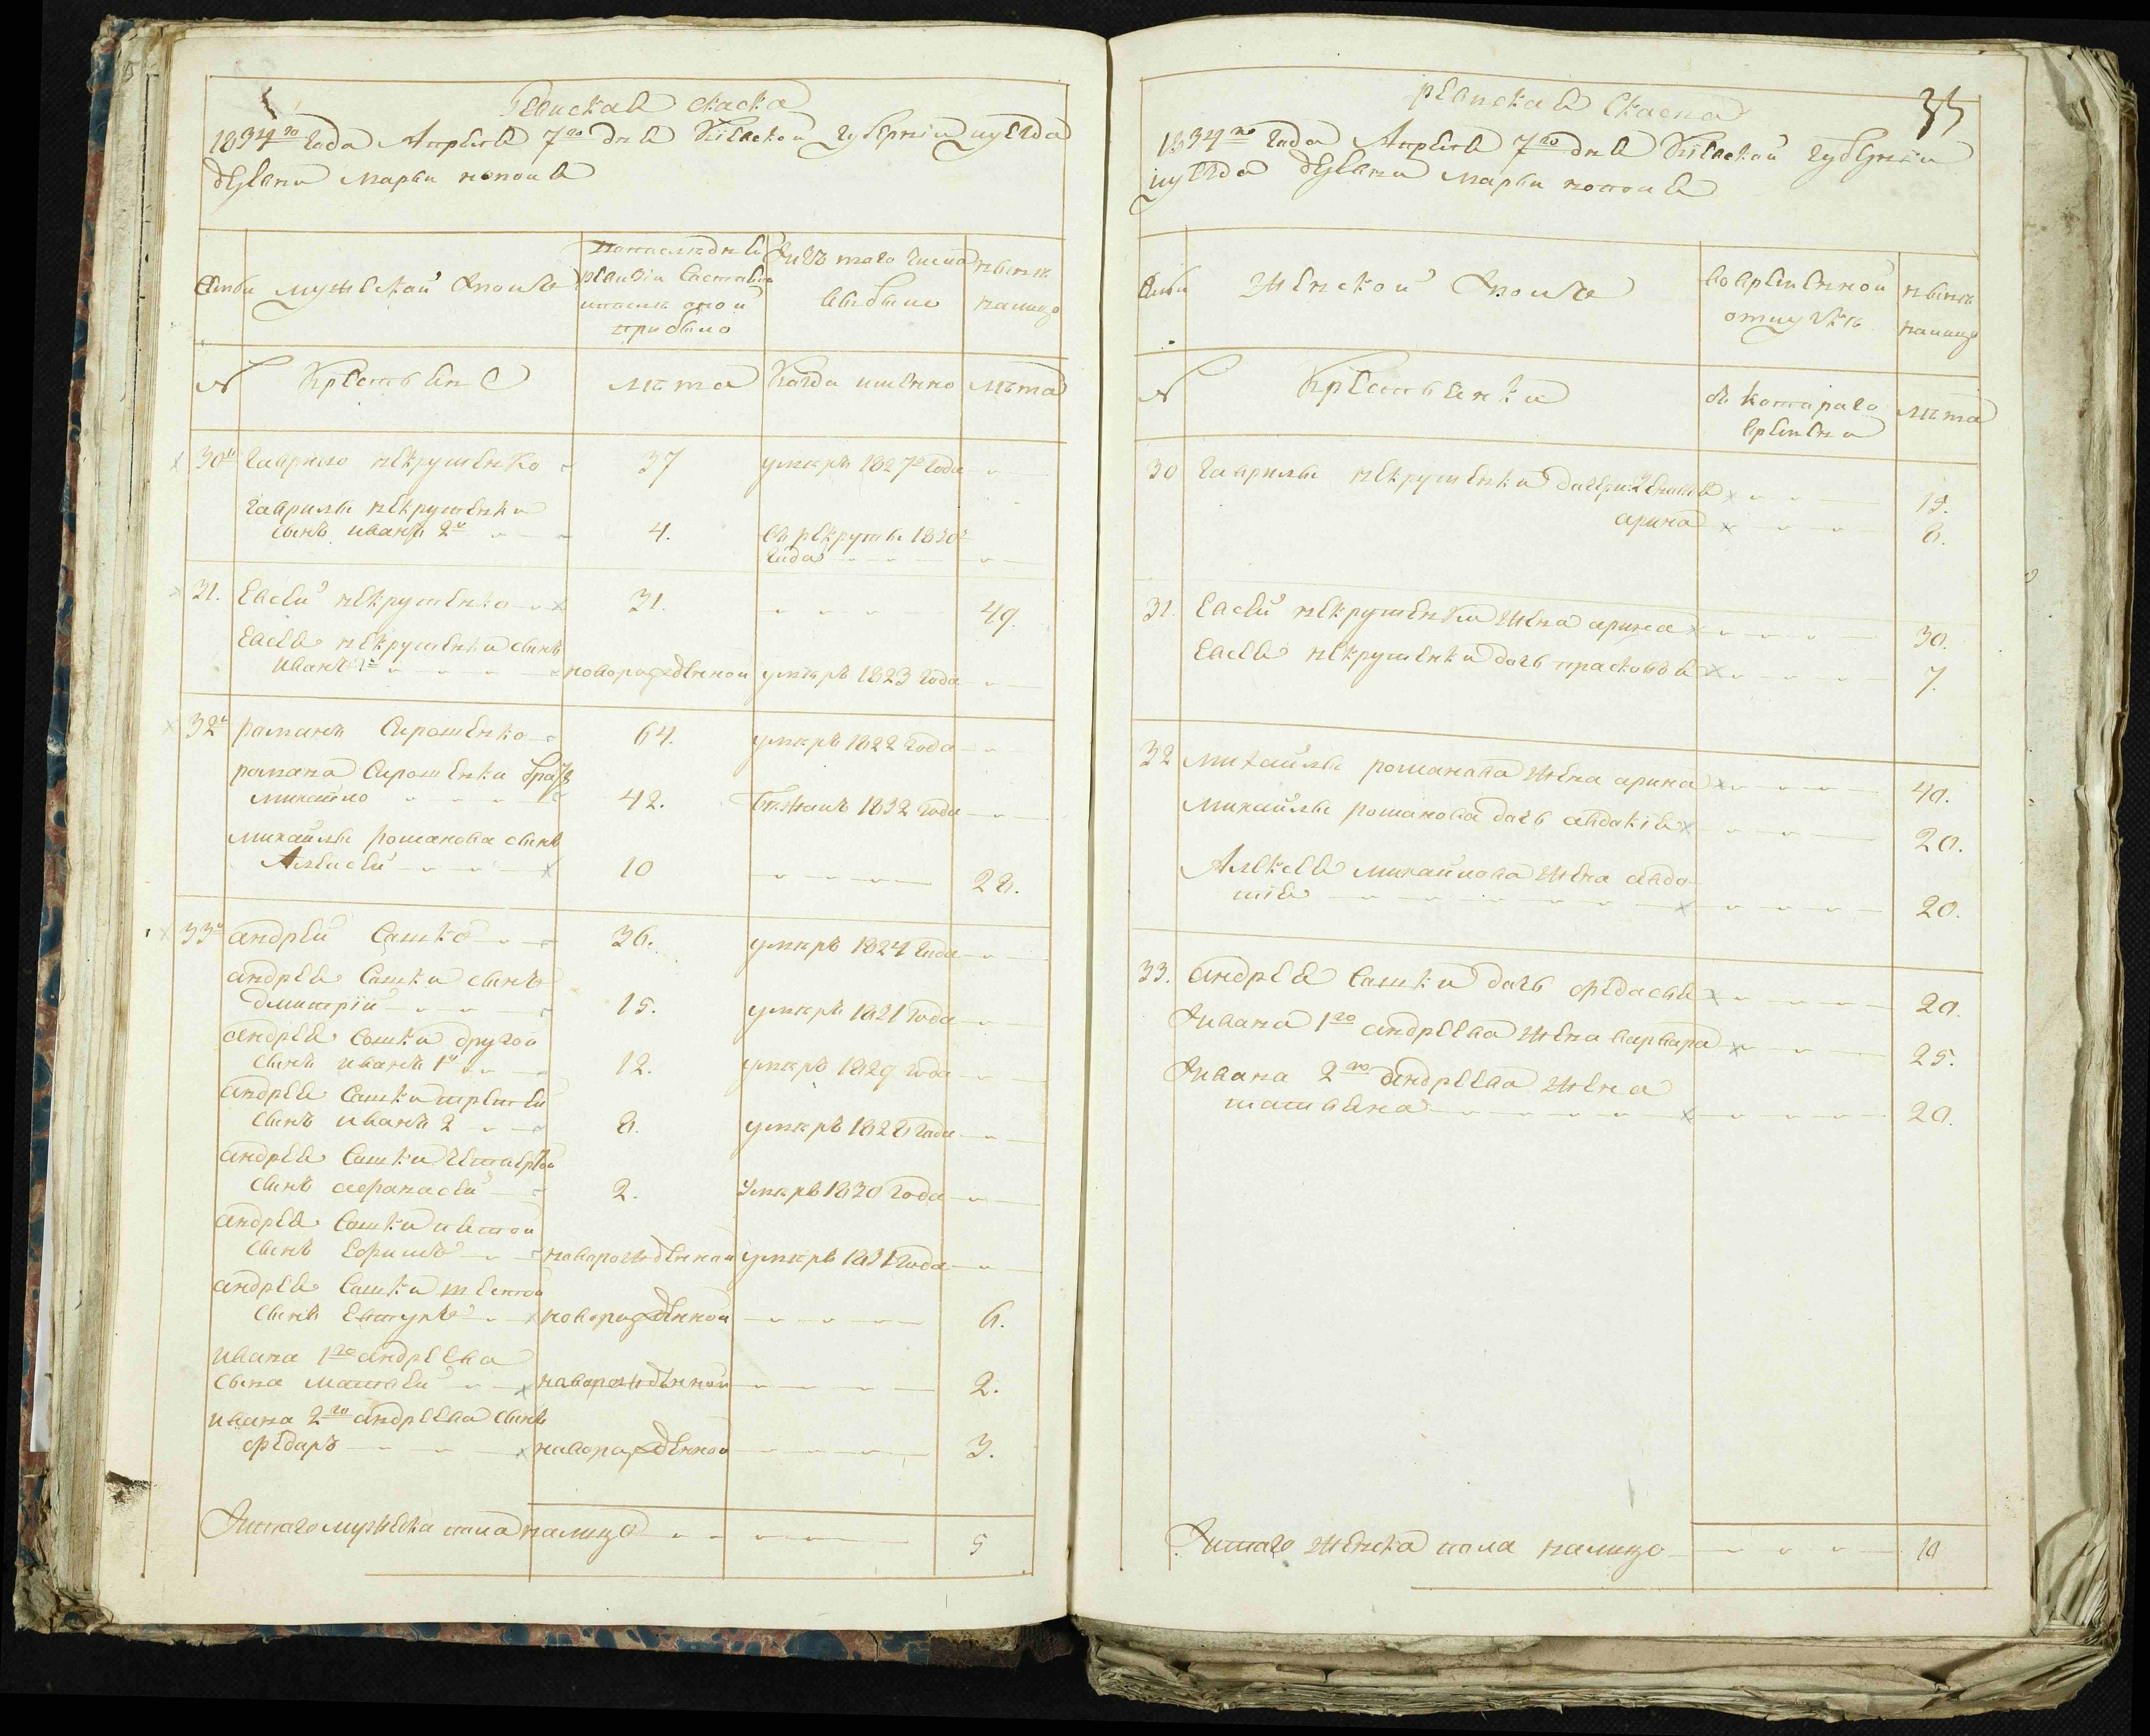 Ревиская скаска
1834го года Апреля 7го дня Киевской губернии и уезда
деревни марьи нополя
Семьи
мужеской полъ
попоследней
ревизіи состояло
ипосле оной
прибыло
Изъ того числа
выбыло
ныне
налицо
№
Крестьяне
лета
Когда имянно
лета
30й гаврило некрутенко 37 умеръ 1827го года
гаврилы некрутенки
сынъ иванъ 2й 4. въ рекруты 1830г
года
31. Евсей некрутенко 31. 49.
Евсея некрутенки сынъ
иванъ новорожденной умеръ 1823 года
32й романъ Сирошенко 64. умеръ 1822 года
романа Сирошенки братъ
михайло 42. бежалъ 1832 года
михайлы романова сынъ
Алексей 10 28.
33й андрей Сашко 36. умеръ 1824 года
андрея Сашки сынъ
дмитрій 15. умеръ 1821 года
андрея Сашки другой
сынъ иванъ 1й 12. умеръ 1829 года
андрея Сашки третей
сынъ иванъ 2 8. умеръ 1828 года
андрея Сашки четвертой
сынъ афанасей 2. умеръ 1830 года
андрея Сашки пятой
сынъ Ефимъ новорожденной умеръ 1831 года
андрея Сашки шестой
сынъ новорожденной 6.
ивана 1го андреева
сына матвей новорожденной 2.
ивана 2го андреева сынъ
федаръ новорожденной 3.
Итого мужеска пола налицо 5
35
ревиская Скаска
1834го года Апреля 7го дня Киевской губернии
и уезда деревни марьи нополя
Семьи
Женской полъ
во временной
отлучке
ныне
налицо
№
Крестьянки
съ котораго
времени
лета
30 гаврилы некрутенки дочери: 15.
арина 8.
31. Евсей некрутенки жена арина 30.
Евсея некрутенки дочь прасковья 7.
32 михайлы романова жена арина 40.
михайлы романова дочь авдакія 20.
Алексея михайлова жена авдо
тія 20.
33. андрея Сашки дочь федасья 20.
Ивана 1го андреева жена варвара 25.
Ивана 2го андреева жена
татьяна 20.
Итого женска пола налицо 10